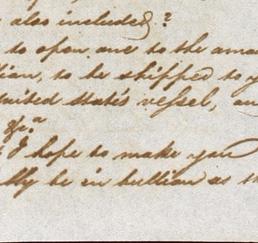 also included?
to open one to the ama
ion, to be shipped to y
united state's vessel, an
&c.a
I hope to make you
lly be in bullion as th